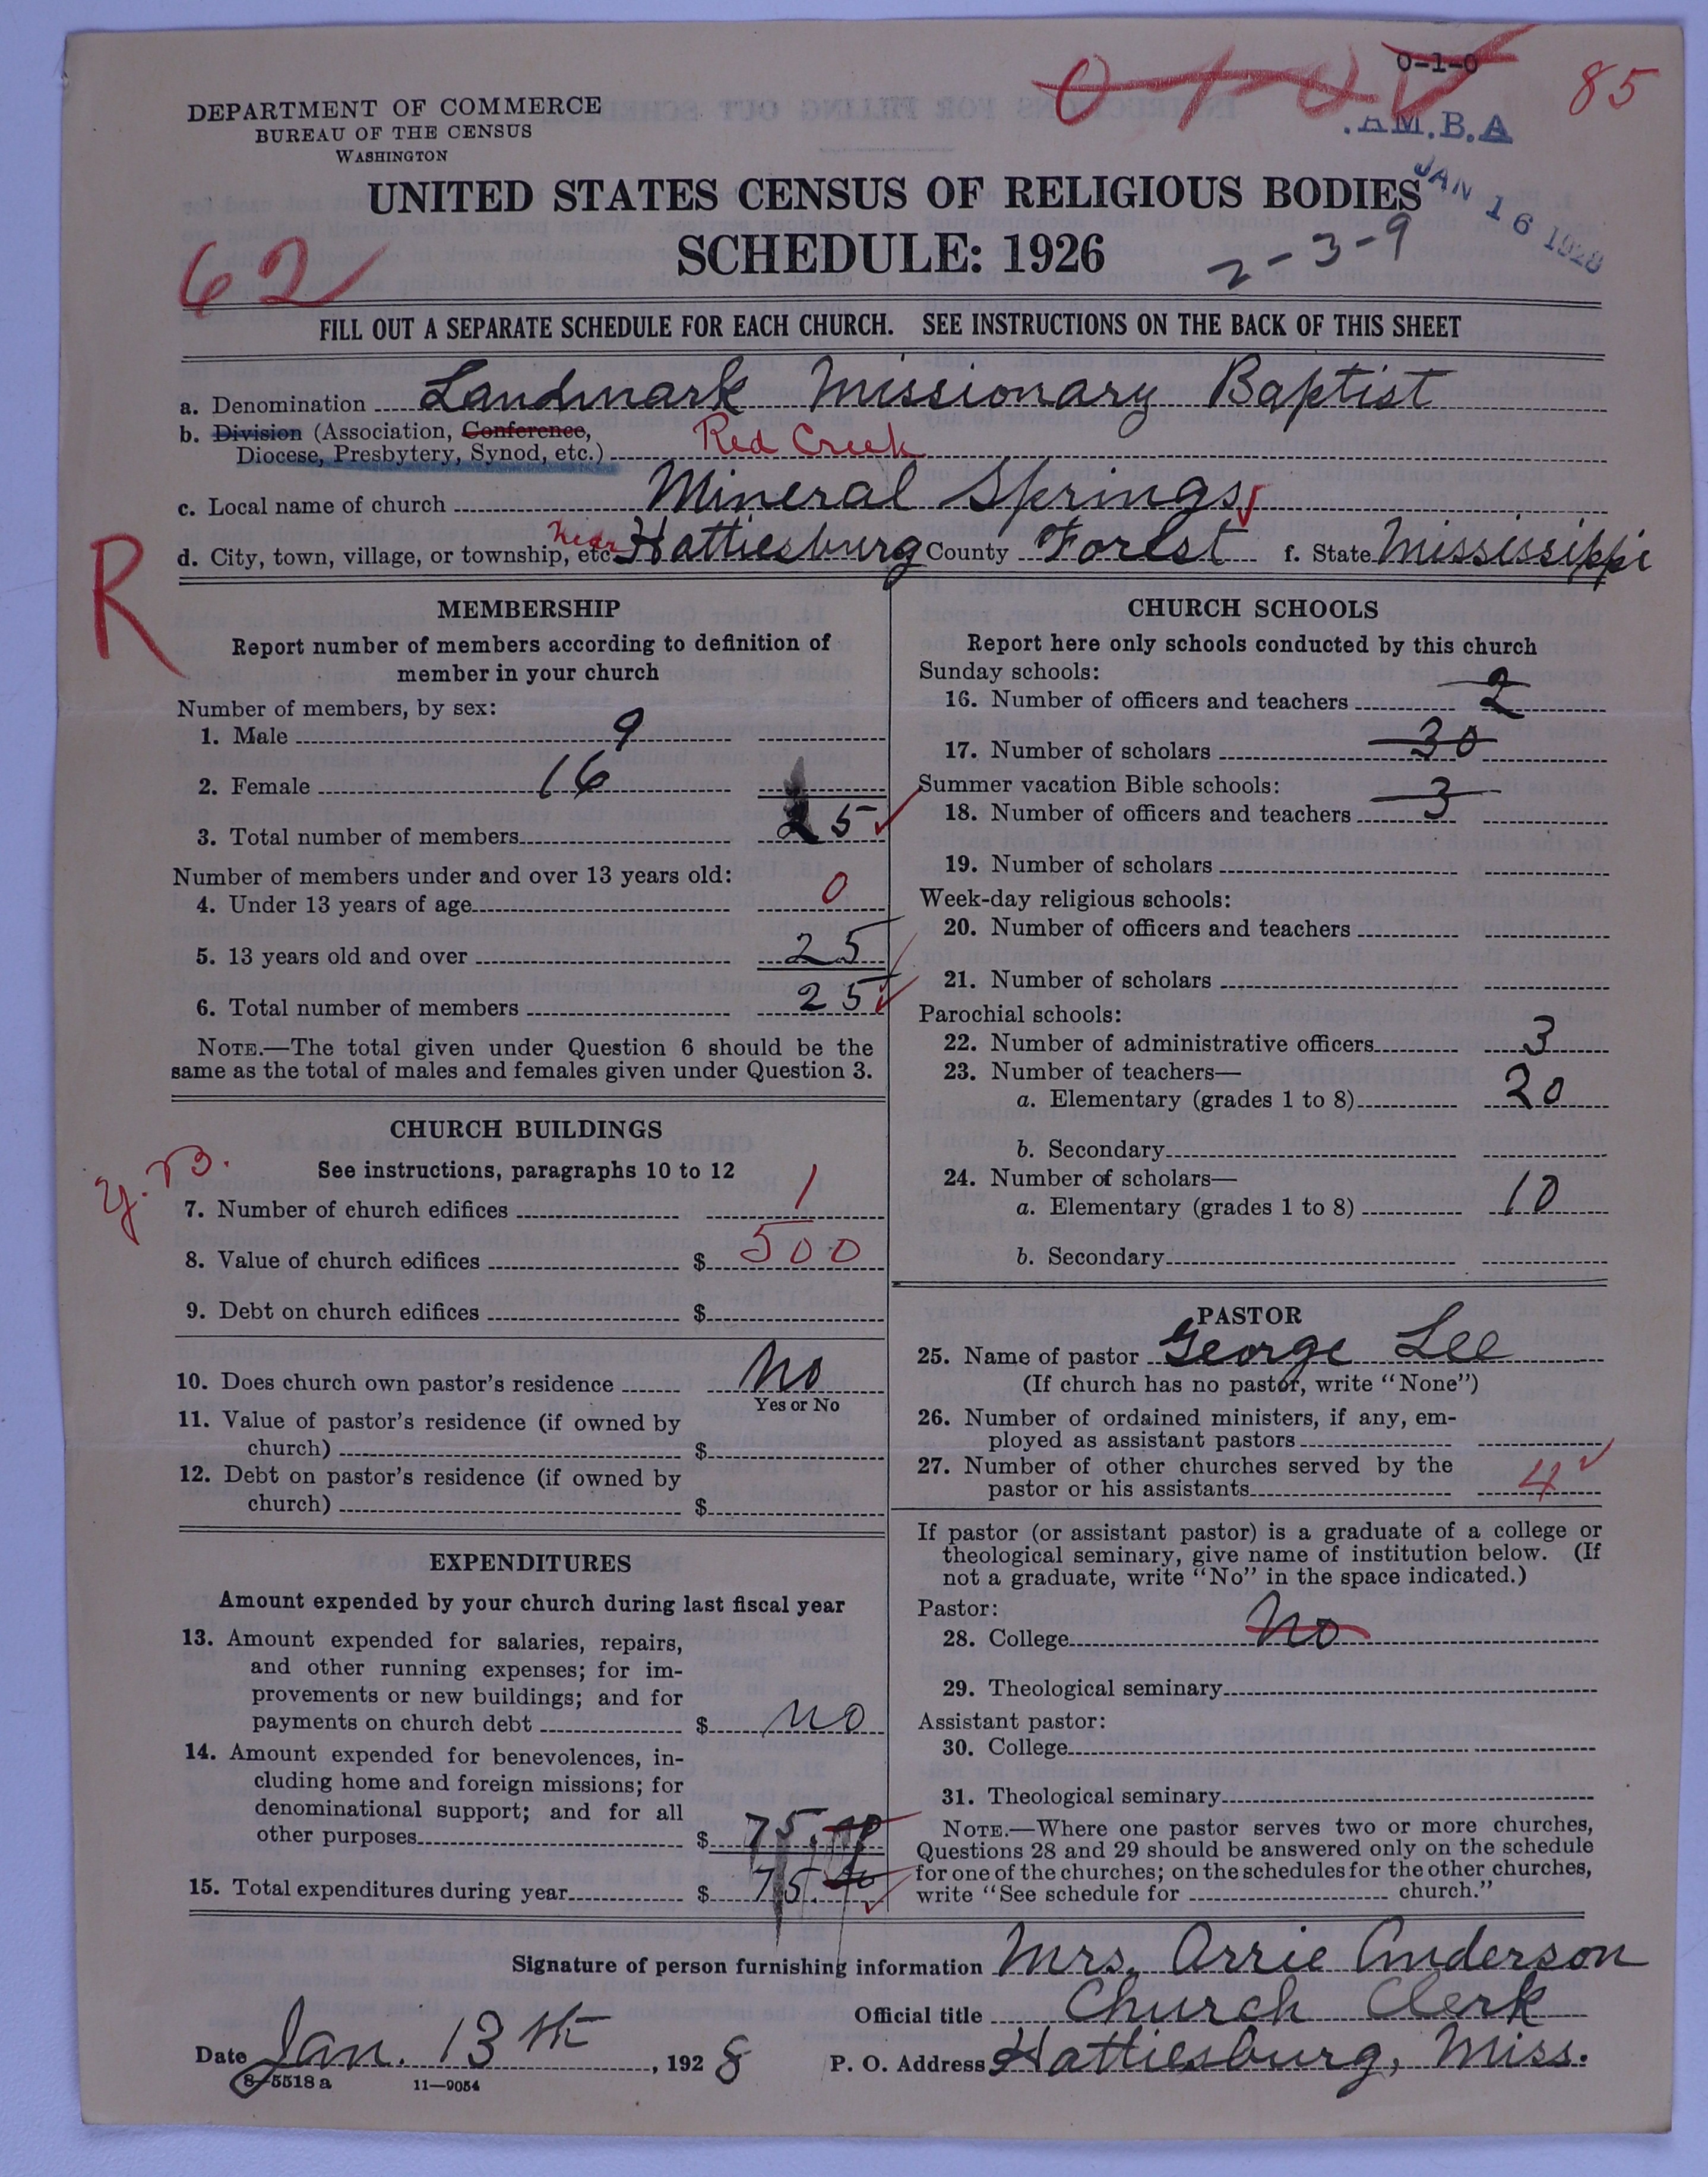 0-1-0
0-1-0
85
A.M.B.A
JAN 16 1928
DEPARTMENT OF COMMERCE
BUREAU OF THE CENSUS
WASHINGTON
UNITED STATES CENSUS OF RELIGIOUS BODIES
SCHEDULE: 1926
2-3-9
62
FILL OUT A SEPARATE SCHEDULE FOR EACH CHURCH. SEE INSTRUCTIONS ON THE BACK OF THIS SHEET
a. Denomination Landmark Missionary Baptist
b. Division (Association, Conference,
Diocese, Presbytery, Synod, etc.) Red Creek
c. Local name of church Mineral Springs
d. City, town, village, or township, etc. Near Hattiesburg County Forest f. State Mississippi
R
MEMBERSHIP
Report number of members according to definition of
member in your church
Number of members, by sex:
1. Male 9
2. Female 16
3. Total number of members 25
Number of members under and over 13 years old:
4. Under 13 years of age 0
5. 13 years old and over 25
6. Total number of members 25
NOTE.—The total given under Question 6 should be the
same as the total of males and females given under Question 3.
CHURCH BUILDINGS
See instructions, paragraphs 10 to 12
y. B.
7. Number of church edifices 1
8. Value of church edifices $ 500
9. Debt on church edifices $
10. Does church own pastor's residence No
Yes or No
11. Value of pastor's residence (if owned by
church) $
12. Debt on pastor's residence (if owned by
church) $
EXPENDITURES
Amount expended by your church during last fiscal year
13. Amount expended for salaries, repairs,
and other running expenses; for im-
provements or new buildings; and for
payments on church debt $ no
14. Amount expended for benevolences, in-
cluding home and foreign missions; for
denominational support; and for all
other purposes $ 75.
15. Total expenditures during year $ 75.
CHURCH SCHOOLS
Report here only schools conducted by this church
Sunday schools:
16. Number of officers and teachers 2
17. Number of scholars 30
Summer vacation Bible schools:
18. Number of officers and teachers 3
19. Number of scholars
Week-day religious schools:
20. Number of officers and teachers
21. Number of scholars
Parochial schools:
22. Number of administrative officers 3
23. Number of teachers—
a. Elementary (grades 1 to 8) 20
b. Secondary
24. Number of scholars—
a. Elementary (grades 1 to 8) 10
b. Secondary
PASTOR
25. Name of pastor George Lee
(If church has no pastor, write "None")
26. Number of ordained ministers, if any, em-
ployed as assistant pastors
27. Number of other churches served by the
pastor or his assistants 4
If pastor (or assistant pastor) is a graduate of a college or
theological seminary, give name of institution below. (If
not a graduate, write "No" in the space indicated.)
Pastor:
28. College No
29. Theological seminary
Assistant pastor:
30. College
31. Theological seminary
NOTE.—Where one pastor serves two or more churches,
Questions 28 and 29 should be answered only on the schedule
for one of the churches; on the schedules for the other churches,
write "See schedule for church."
Signature of person furnishing information Mrs. Orrie Anderson
Official title Church Clerk
Date Jan. 13th, 1928 P. O. Address Hattiesburg, Miss.
8-5518 a 11—9054